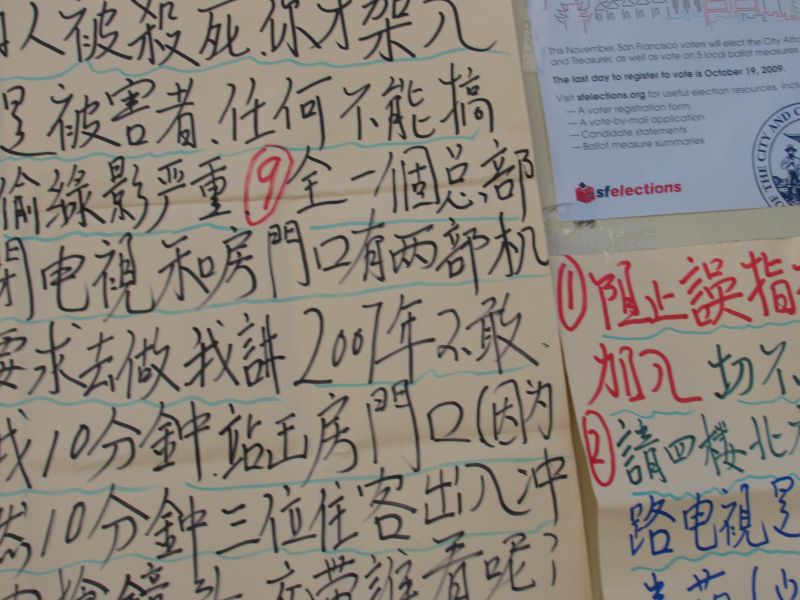 人被殺死.你才架入
是被害者.任何不能搞
偷線影严重.⑨全一個总部
閉电視和房門口有两部机
要求去做我講2007年不敢
我10分鐘.站在房門口(因为
然10分鐘三位住客出入冲
帶誰看呢?
This November, San Francisco voters will elect the City Atto
and Treasurer, as well as vote on 5 local ballot measures
The last day to register to vote is October 19, 2009.
Visit sfelections.org for useful election resources, inclu
— A voter registration form
— A vote-by-mail application
— Candidate statements
— Ballot measure summaries
sfelections
OF THE CITY AND C
①阻止誤指
加入 切不
②請四楼北
路电視是